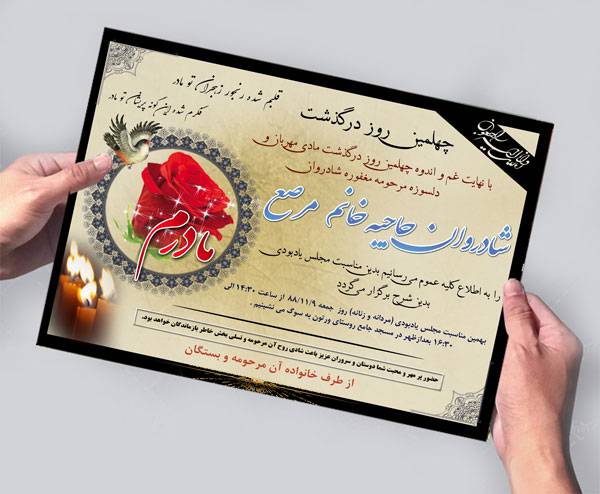 قلبم شده رنجور زهجران تو مادر
فکرم شده این گونه پریشان تو مادر
انا لله و انا الیه راجعون
چهلمین روز درگذشت
با نهایت غم و اندوه چهلمین روز درگذشت مادی مهربان و
دلسوزه مرحومه مغفوره شادروان
شادروان حاجیه خانم مرصع
مادرم
را به اطلاع کلیه عموم می رسانیم بدیز مناسبت مجلس یادبودی
بدین شرح برگزار می گردد
بهمین مناسبت مجلس یادبودی (مردانه و زنانه) روز جمعه ۸۸/۱۱/۹ از ساعت ۱۴:۳۰ الی
۱۶:۳۰ بعدازظهر در مسجد جامع روستای ورثون به سوگ می نشینیم .
حضور پر مهر و محبت شما دوستان و سروران عزیز باعث شادی روح آن مرحومه و تسلی بخش خاطر بازماندگان خواهد بود.
از طرف خانواده آن مرحومه و بستگان